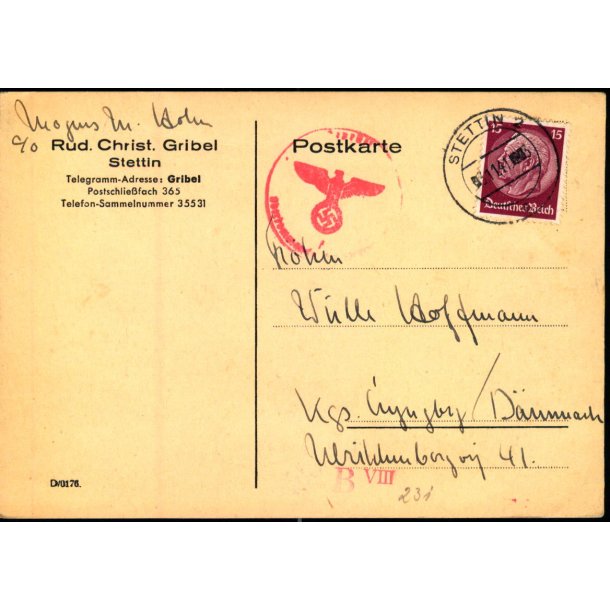 Magnus M. Holm
c/o
Rud. Christ. Gribel
Stettin
Telegramm-Adresse: Gribel
Postschließfach 365
Telefon-Sammelnummer 35531
Postkarte
STETTIN 2
15 15
Deutsches Reich
Hoffmann
Kgs. Lyngby / Dänemark
41.
B VIII
231
D/0176.